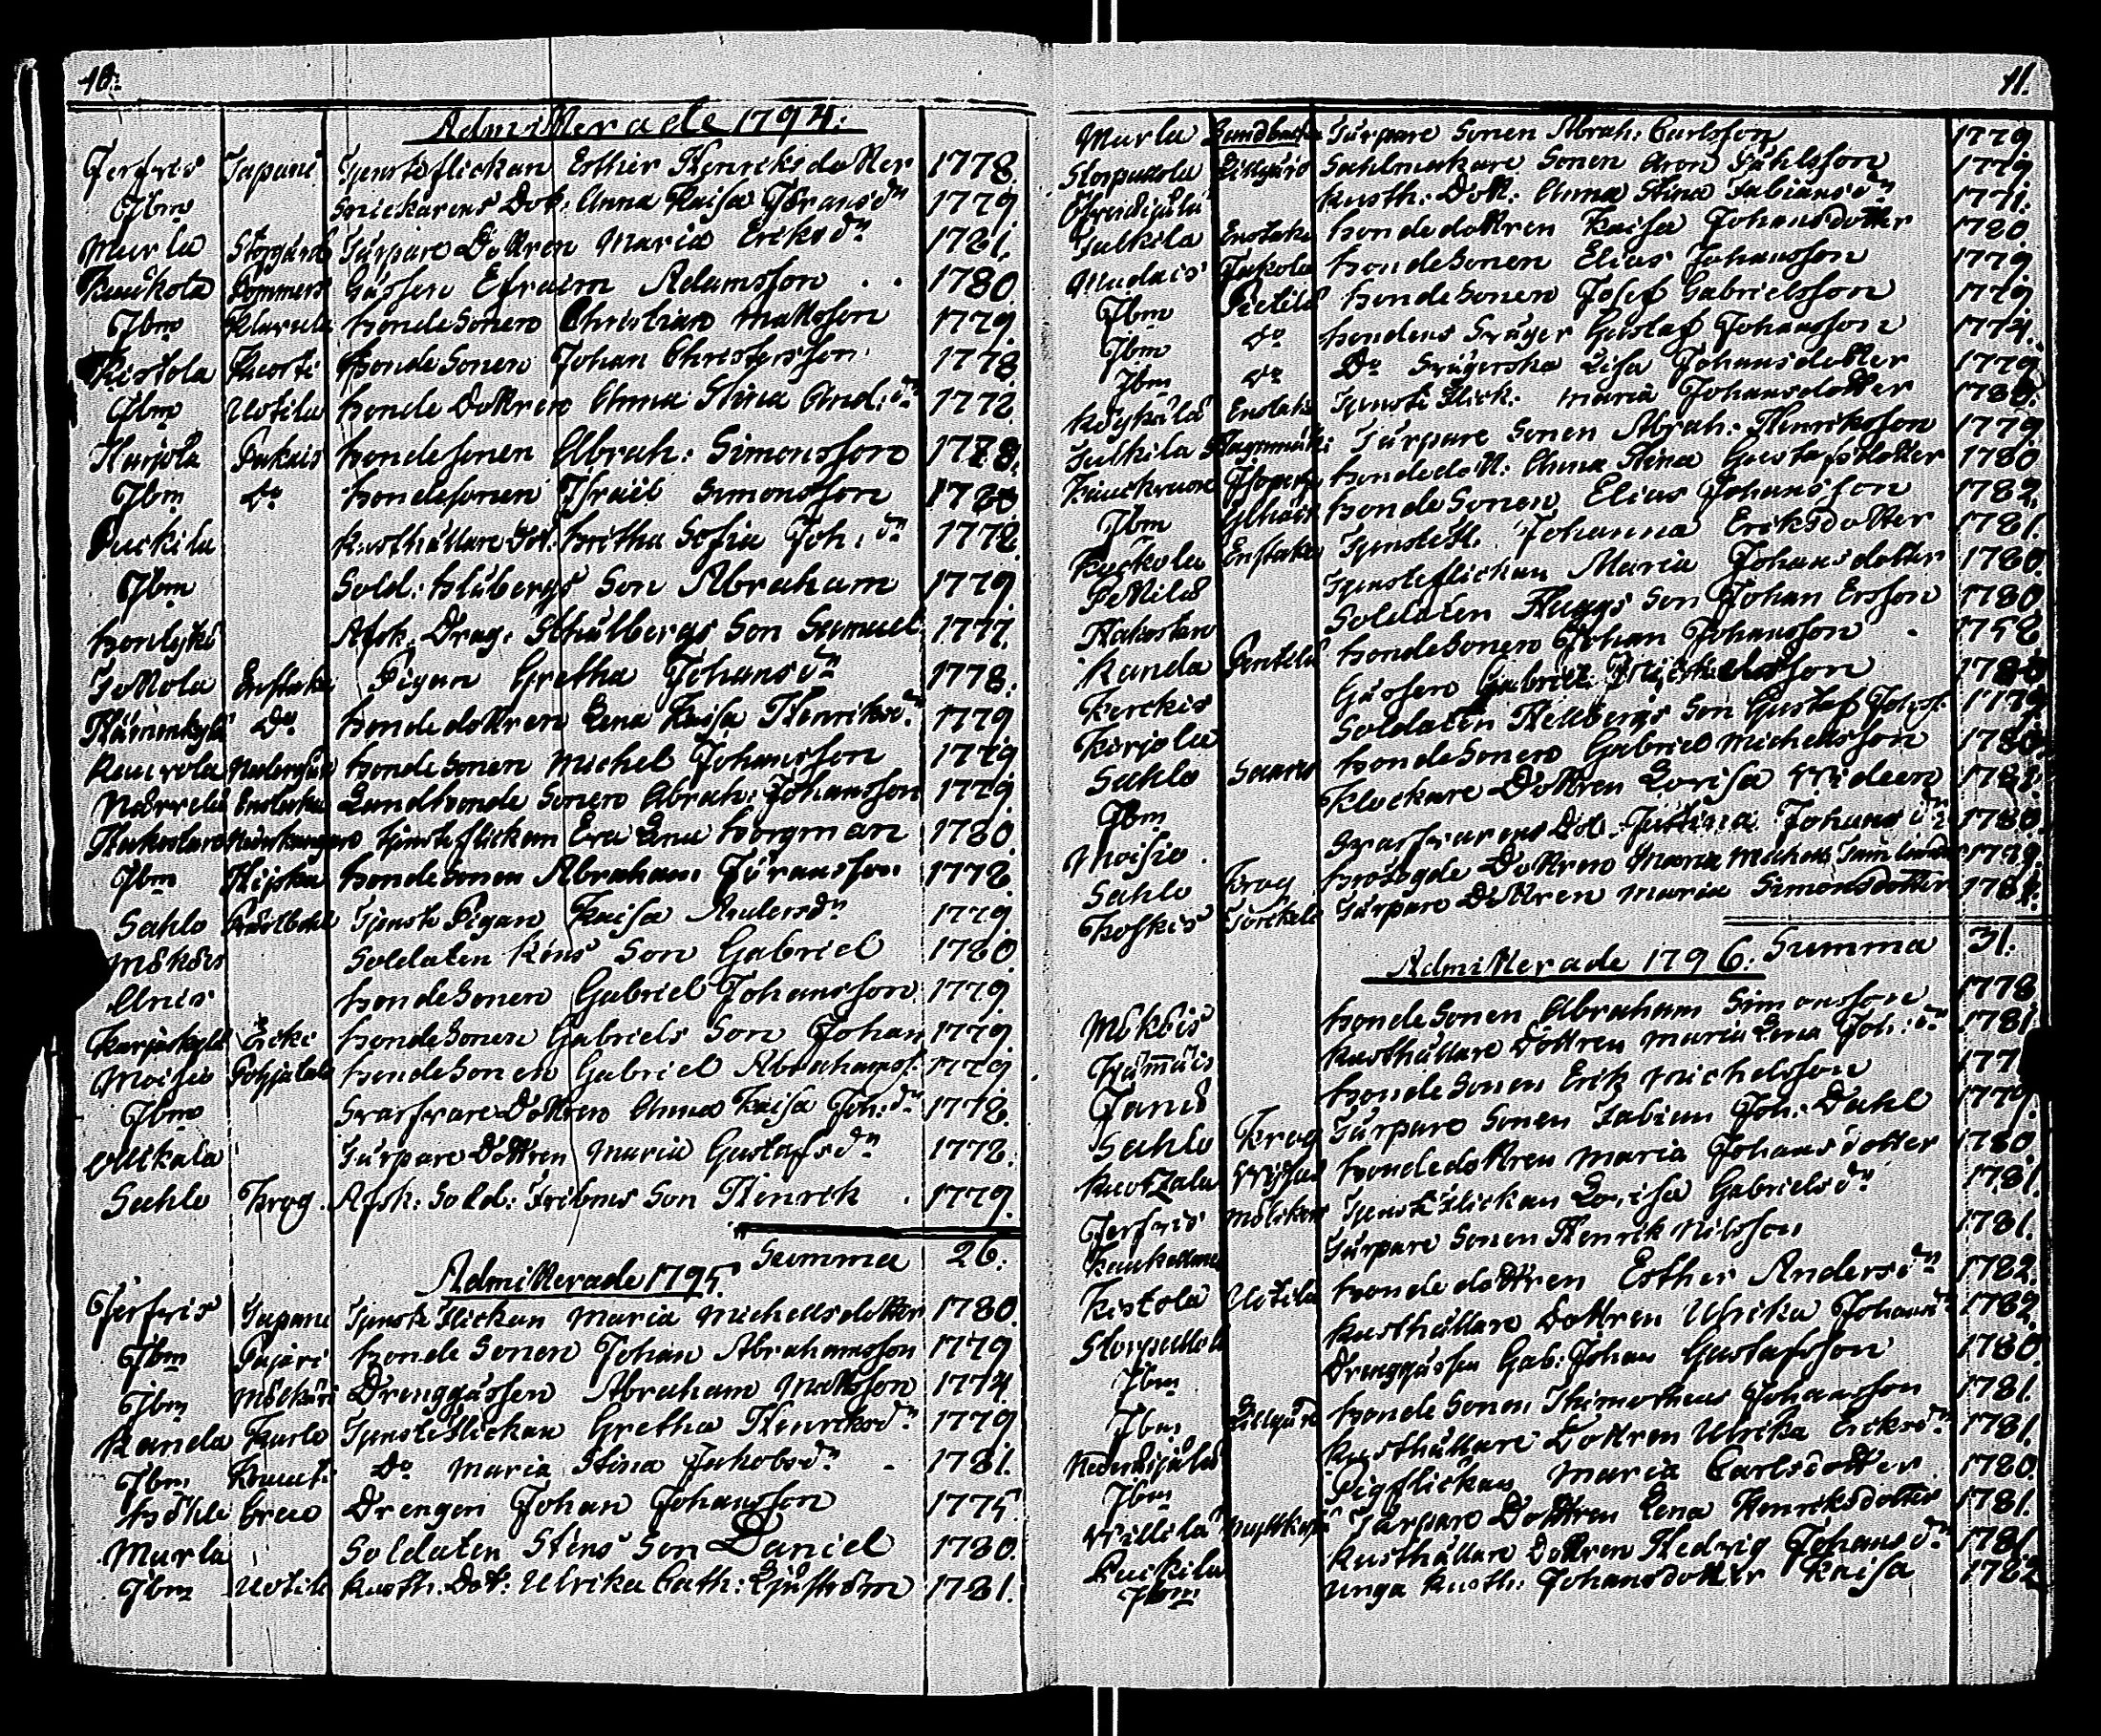 10.
Admitterade 1794.
Jerfvis Tapani Tjensteflickan Esther Henriksdotter 1778.
Ibm Snickarens Dot. Anna Kaisa Jöransdr 1779.
Murla Storgård Tårpare Dottren Maria Eriksdr 1781.
Kaukola Pommers Gåssen Efraim Adamsson 1780
Ibm bondesonen Christian Mattsson 1779
Kistola Knuti bondesonen Johan Christersson 1778
Ibm Uotila bonde Dottren Anna Stina And:dr 1778
Harjola Pukais bondesonen Abrah: Simonsson 1778.
Ibm Do bondesonen Israël Simonsson 1780
Puckila Rusthållare Dot. Britha Sofia Joh:dr 1778.
Ibm Sold: Blåbergs Son Abraham 1779.
Afsk. Drag: Sthålbergs Son Samuel 1777.
Enstaka Pigan Gretha Johansdr 1778.
Do bonde dottren Lena Kaisa Henriksdr 1779.
bonde sonen Michel Johansson 1779
Enstaka Landbonde sonen Abrah: Johansson 1779.
Tjensteflickan Eva Lena Borgman 1780.
Ibm bondesonen Abraham Jöransson 1778.
Sahlo Tjenste Pigan Kaisa Andersdr 1779.
Soldaten Köns Son Gabriel 1780
Anis bondesonen Gabriel Johansson 1779.
Karjakylä Ericki bondesonen Gabriels Son Johan 1779.
Moisio Pohjatalo bondesonen Gabriel Abrahamss: 1779.
Ibm Svarfvare Dottren Anna Kaisa Joh:dr 1778.
Tårpare Dottren Maria Gustafsdr 1778.
Sahlo Krog. Afsk: Sold: Fribms Son Henrik 1779.
Summa 26.
Admitterade 1795.
Jerfvis Tapani Tjenste Flickan Maria Michelsdotter 1780.
Ibm Pajari bonde Sonen Johan Abrahamsson 1779
Ibm Drenggåssen Abraham Mattsson 1774.
Kanda Karlo Tjenste flickan Gretha Henriksdr 1779
Ibm Do Maria Stina Jakobsdr 1781.
Drengen Johan Johansson 1775.
Murla Soldaten Stens Son Daniel 1780.
Ibm Uotila Rusth. Dot: Ulrika Cath: Ljuström 1781.
11.
Murla Sundbacka Tårpare Sonen Abrah: Carlsson 1779
Storpullola Lillgård Sahlmakare Sonen Aron Påhlsson 1779
Rusth: Dott: Anna Stina Fabiansdr 1771.
Enstaka bonde dottren Kaisa Johansdotter 1780
Jakola bondesonen Elias Johansson 1779.
Ibm Pietilä bondesonen Josef Gabrielsson 1779.
Ibm do bondens Svåger Gustaf Johansson 1774.
Ibm do Do Svägerska Lisa Johansdotter 1779.
Enstaka Tjenste Flick. Maria Johansdotter 1780.
Tårpare Sonen Abrah: Henriksson 1779.
bondedott: Anna Stina Gustafsdotter 1780
Ibm bonde Sonen Elias Johansson 1782.
Enstaka Tjenstefl. Johanna Eriksdotter 1781.
Tjensteflickan Maria Johansdotter 1780.
Soldaten Huggs Son Johan Ersson 1780
Kanda Penttilä bondesonen Johan Johansson 1758
Kerckis Gåssen Gabriel Michelsson 1780
Karjola Soldaten Hellbergs Son Gustaf Johss: 1779
Sahlo Saaris bondesonen Gabriel Michelsson 1780
Ibm Klockare Dottren Lovisa Wideen 1781.
Moisio Svarfvarens Dot. Justina Johansdr 1780.
Sahlo Krog brobygde Dottren Maria Michels 1779.
Tårpare Dottren Maria Simonsdotter 1781.
Summa 31.
Admitterade 1796.
bondesonen Abraham Simonsson 1778
Rusthållare Dottren Maria Lena Joh:dr 1781.
bonde Sonen Erik Michelsson 177
Sahlo Krog Tårpare Sonen Fabian Joh: Dahl 1777.
bondedottren Maria Johansdotter 1780
Jerfvis Tjenste Flickan Lovisa Gabrielsdr 1781.
Tårpare Sonen Henrik Nilsson 1781.
Kistola Uotila bonde dottren Esther Andersdr 1782.
Storpullola Rusthållare Dottren Ulrika Johansdr 1782
Ibm Drenggåssen Gab: Johan Gustafsson 1780.
Ibm Lillgård bonde Sonen Thimotheus Johansson 1781.
Rusthållare Dottren Ulrika Ericksdr 1781.
Ibm Pigflickan Maria Carlsdotter 1780.
Willilä Tårpare Dottren Lena Henriksdotter 1781.
Puckila Rusthållare Dottren Hedvig Johansdr 1781
Ibm Unga Rusth: Johansdotter Kaisa 1782